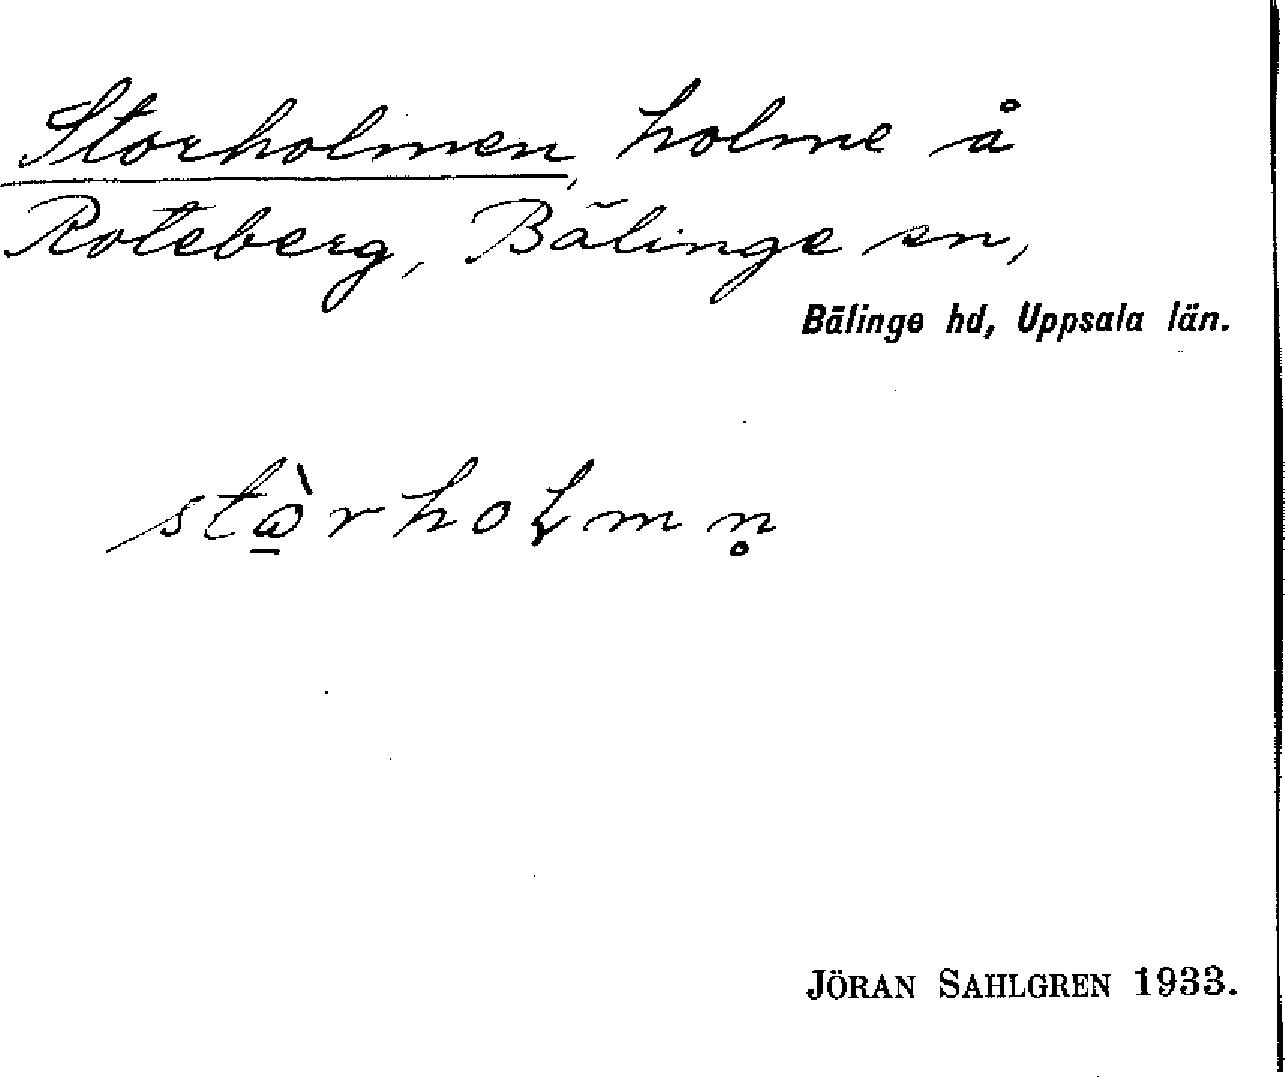 Storholmen, holme å
Roteberg, Bälinge sn,
Bälinge hd, Uppsala län.
stὼ̲rhoⱡmn̥
JÖRAN SAHLGREN 1933.